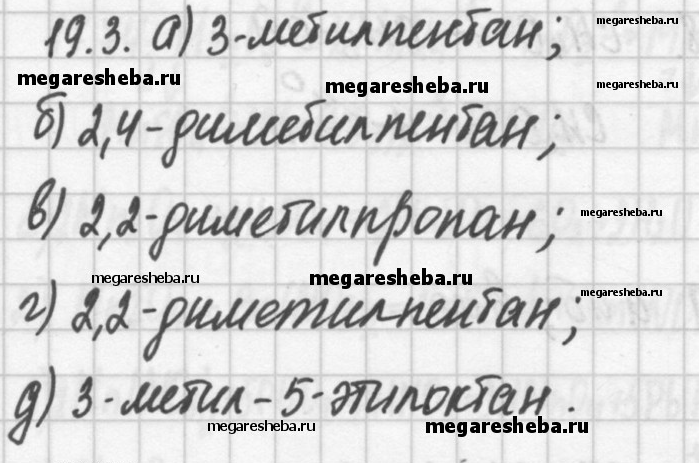 19.3. а) 3-метилпентан; megaresheba.ru
megaresheba.ru megaresheba.ru megaresheba.ru
б) 2,4-диметилпентан;
в) 2,2-диметилпропан; megaresheba.ru
megaresheba.ru megaresheba.ru megaresheba.ru
г) 2,2-диметилпентан;
д) 3-метил-5-этилоктан.
megaresheba.ru megaresheba.ru